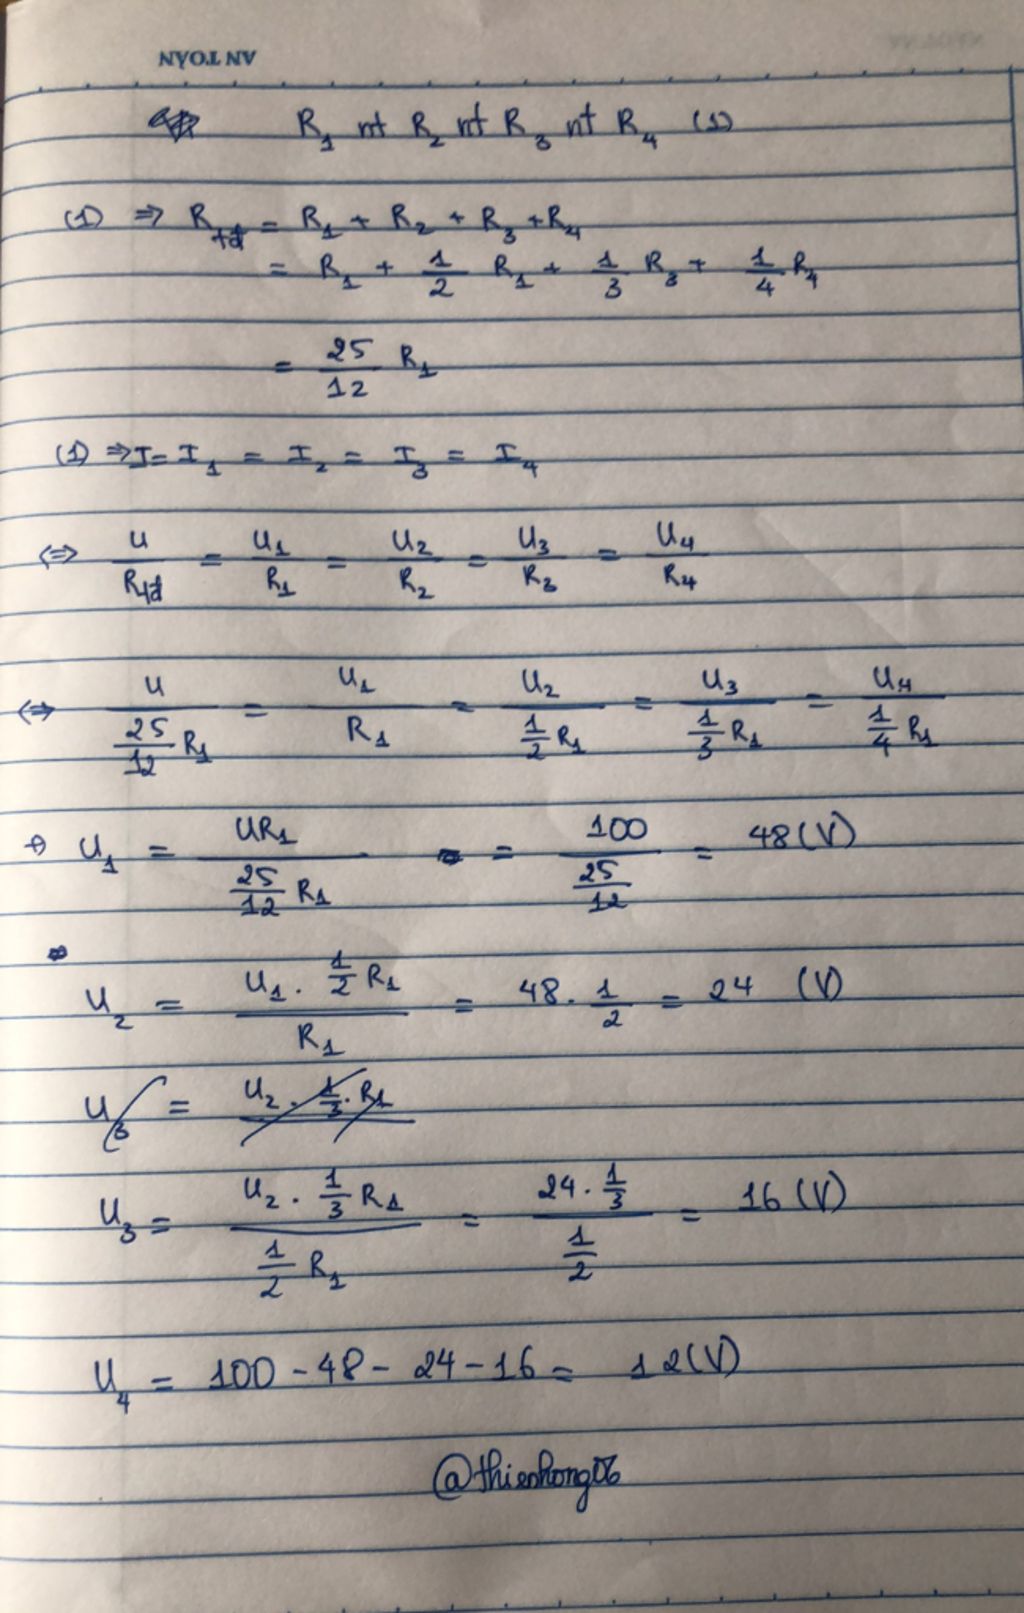 AN TOÀN
R₁ nt R₂ nt R₃ nt R₄ (1)
(1) ⇒ R_tđ = R₁ + R₂ + R₃ + R₄
= R₁ + 1/2 R₁ + 1/3 R₃ + 1/4 R₄
= 25/12 R₁
(1) ⇒ I = I₁ = I₂ = I₃ = I₄
⇔ U/R_tđ = U₁/R₁ = U₂/R₂ = U₃/R₃ = U₄/R₄
⇔ U/(25/12 R₁) = U₁/R₁ = U₂/(1/2 R₁) = U₃/(1/3 R₁) = U₄/(1/4 R₁)
→ U₁ = UR₁/(25/12 R₁) = 100/(25/12) = 48 (V)
U₂ = (U₁ . 1/2 R₁)/R₁ = 48 . 1/2 = 24 (V)
U₃ = U₂ . 1/3 . R₁
U₃ = (U₂ . 1/3 R₁)/(1/2 R₁) = (24 . 1/3)/(1/2) = 16 (V)
U₄ = 100 - 48 - 24 - 16 = 12 (V)
@thienhong06